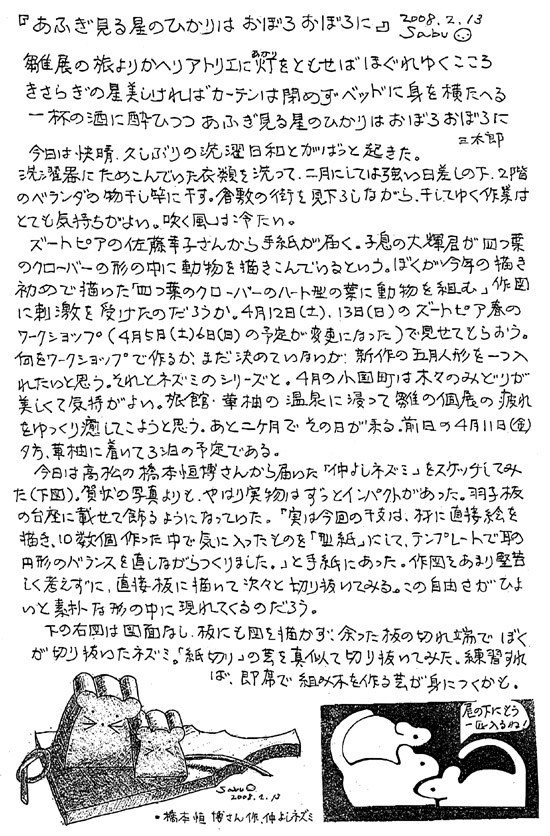 『あふぎ見る星のひかりは おぼろ おぼろに』 2008.2.13
Sabu
雛展の旅よりかへりアトリエに灯をともせば ほぐれゆくこころ
あかり
きさらぎの星美しければ カーテンは閉めず ベッドに身を横たへる
一杯の酒に酔ひつつ あふぎ見る星のひかりは おぼろ おぼろに
三太郎
今日は快晴、久しぶりの洗濯日和とがばっと起きた。
洗濯器にためこんでいた衣類を洗って、二月にしては強い日差しの下、2階
のベランダの物干し竿に干す。倉敷の街を見下ろしながら、干してゆく作業は
とても気持ちがよい。吹く風は冷たい。
ズートピアの佐藤幸子さんから手紙が届く。子息の大輝君が四つ葉
のクローバーの形の中に動物を描きこんでいるという。ぼくが今年の描き
初めで描いた「四つ葉のクローバーのハート型の葉に動物を組む」作図
に刺激を受けたのだろうか。4月12日(土)、13日(日)のズートピア春の
ワークショップ(4月5日(土)6日(日)の予定が変更になった)で見せてもらおう。
何をワークショップで作るか、まだ決めていないが、新作の五月人形を一つ入
れたいと思う。それとネズミのシリーズと。4月の小国町は木々のみどりが
美しくて気持がよい。旅館・華柚の温泉に浸って雛の個展の疲れ
をゆっくり癒してこようと思う。あと二ヶ月でその日が来る。前日の4月11日(金)
夕方、華柚に着いて3泊の予定である。
今日は高松の橋本恒博さんから届いた「仲よしネズミ」をスケッチしてみ
た(下図)。賀状の写真よりも、やはり実物はずっとインパクトがあった。羽子板
の台座に載せて飾るようになっていた。『実は今回の干支は、材に直接絵を
描き、10数個作った中で気に入ったものを「型紙」にして、テンプレートで耳の
円形のバランスを直しながらつくりました。』と手紙にあった。作図をあまり堅苦
しく考えずに、直接板に描いて次々と切り抜いてみる。この自由さがひょ
いと素朴な形の中に現れてくるのだろう。
下の右図は図面なし、板にも図を描かず、余った板の切れ端で ぼく
が切り抜いたネズミ。「紙切り」の芸を真似て切り抜いてみた。練習すれ
ば、即席で 組み木を作る芸が身につくかも。
尾の下にもう
一匹入るね!
Sabu
2008.2.13
・橋本恒博さん作、仲よしネズミ